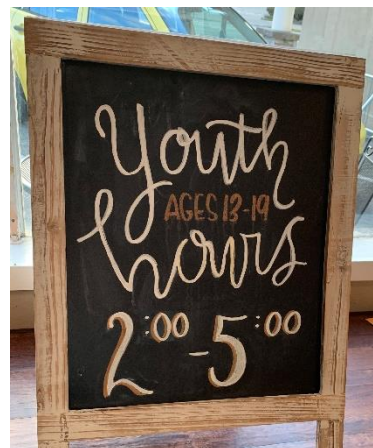 Youth
AGES 13-19
hours
2:00 - 5:00